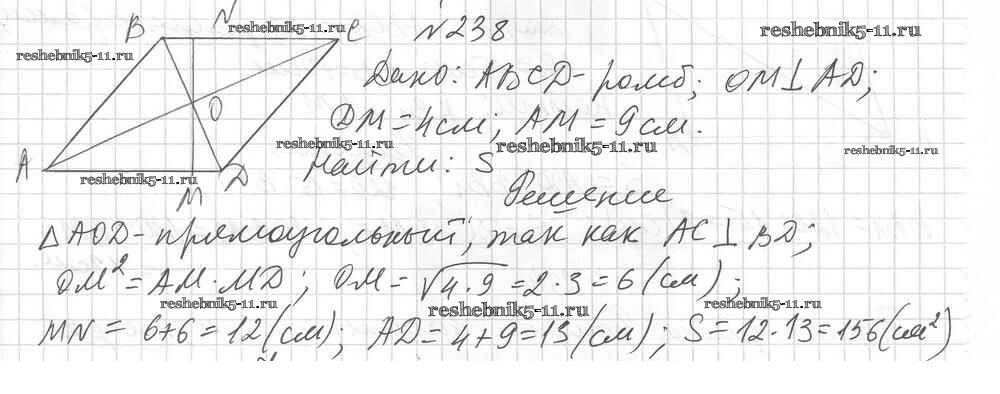 B N C
A O D M
№238
Дано: ABCD-ромб; OM⊥AD;
DM=4см; AM=9см.
Найти: S
Решение
△AOD-прямоугольный, так как AC⊥BD;
OM²=AM·MD; OM=√4·9=2·3=6(см);
MN=6+6=12(см); AD=4+9=13(см); S=12·13=156(см²)
reshebnik5-11.ru
reshebnik5-11.ru
reshebnik5-11.ru
reshebnik5-11.ru
reshebnik5-11.ru
reshebnik5-11.ru
reshebnik5-11.ru
reshebnik5-11.ru
reshebnik5-11.ru
reshebnik5-11.ru